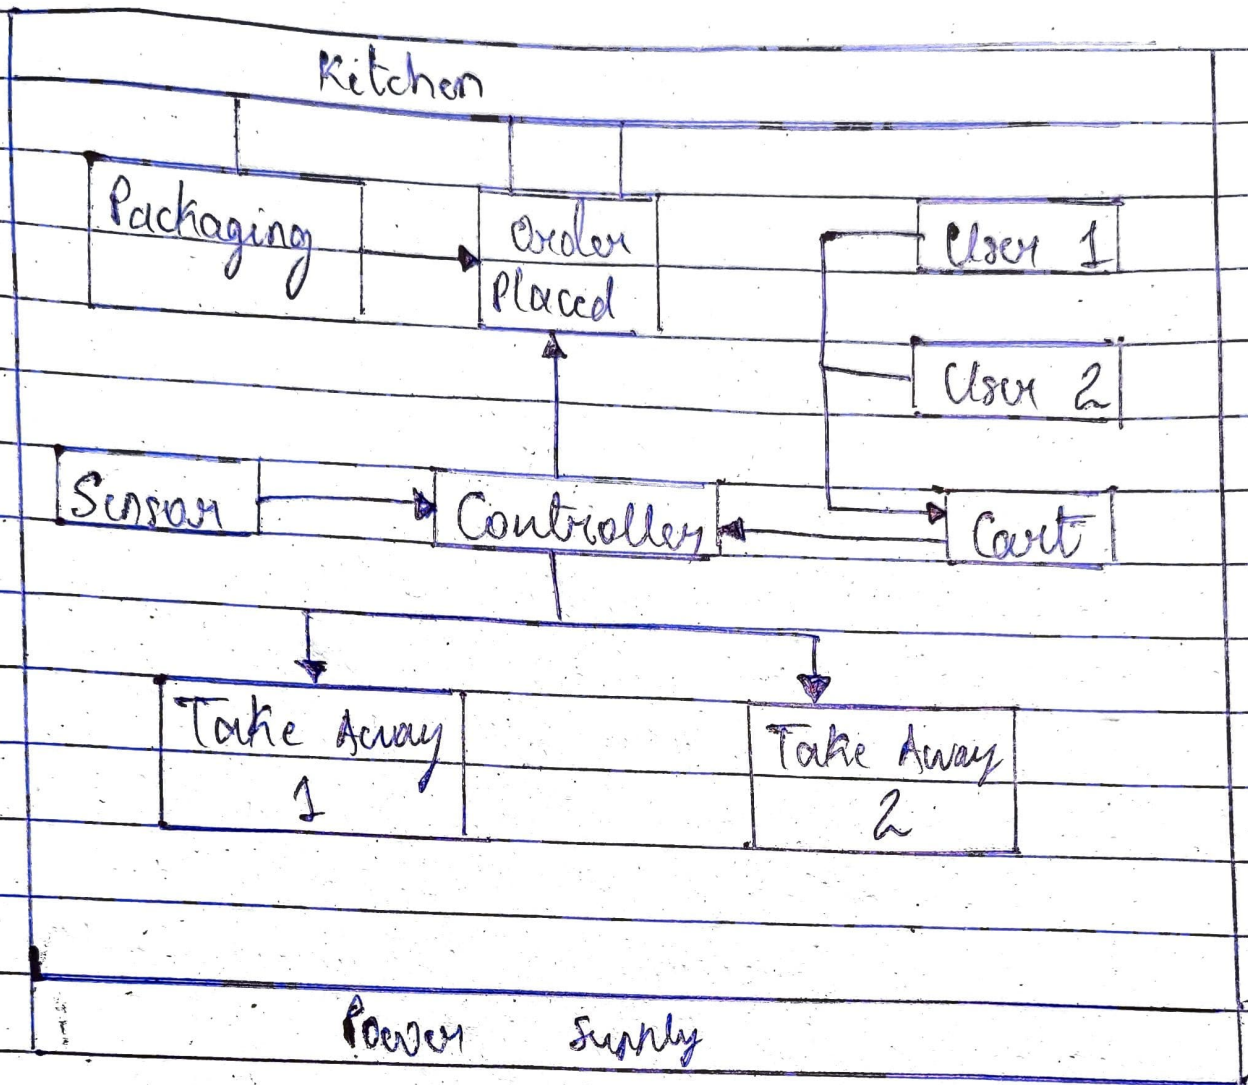 Kitchen
Packaging
Order
Placed
User 1
User 2
Sensor
Controller
Cart
Take Away
1
Take Away
2
Power Supply